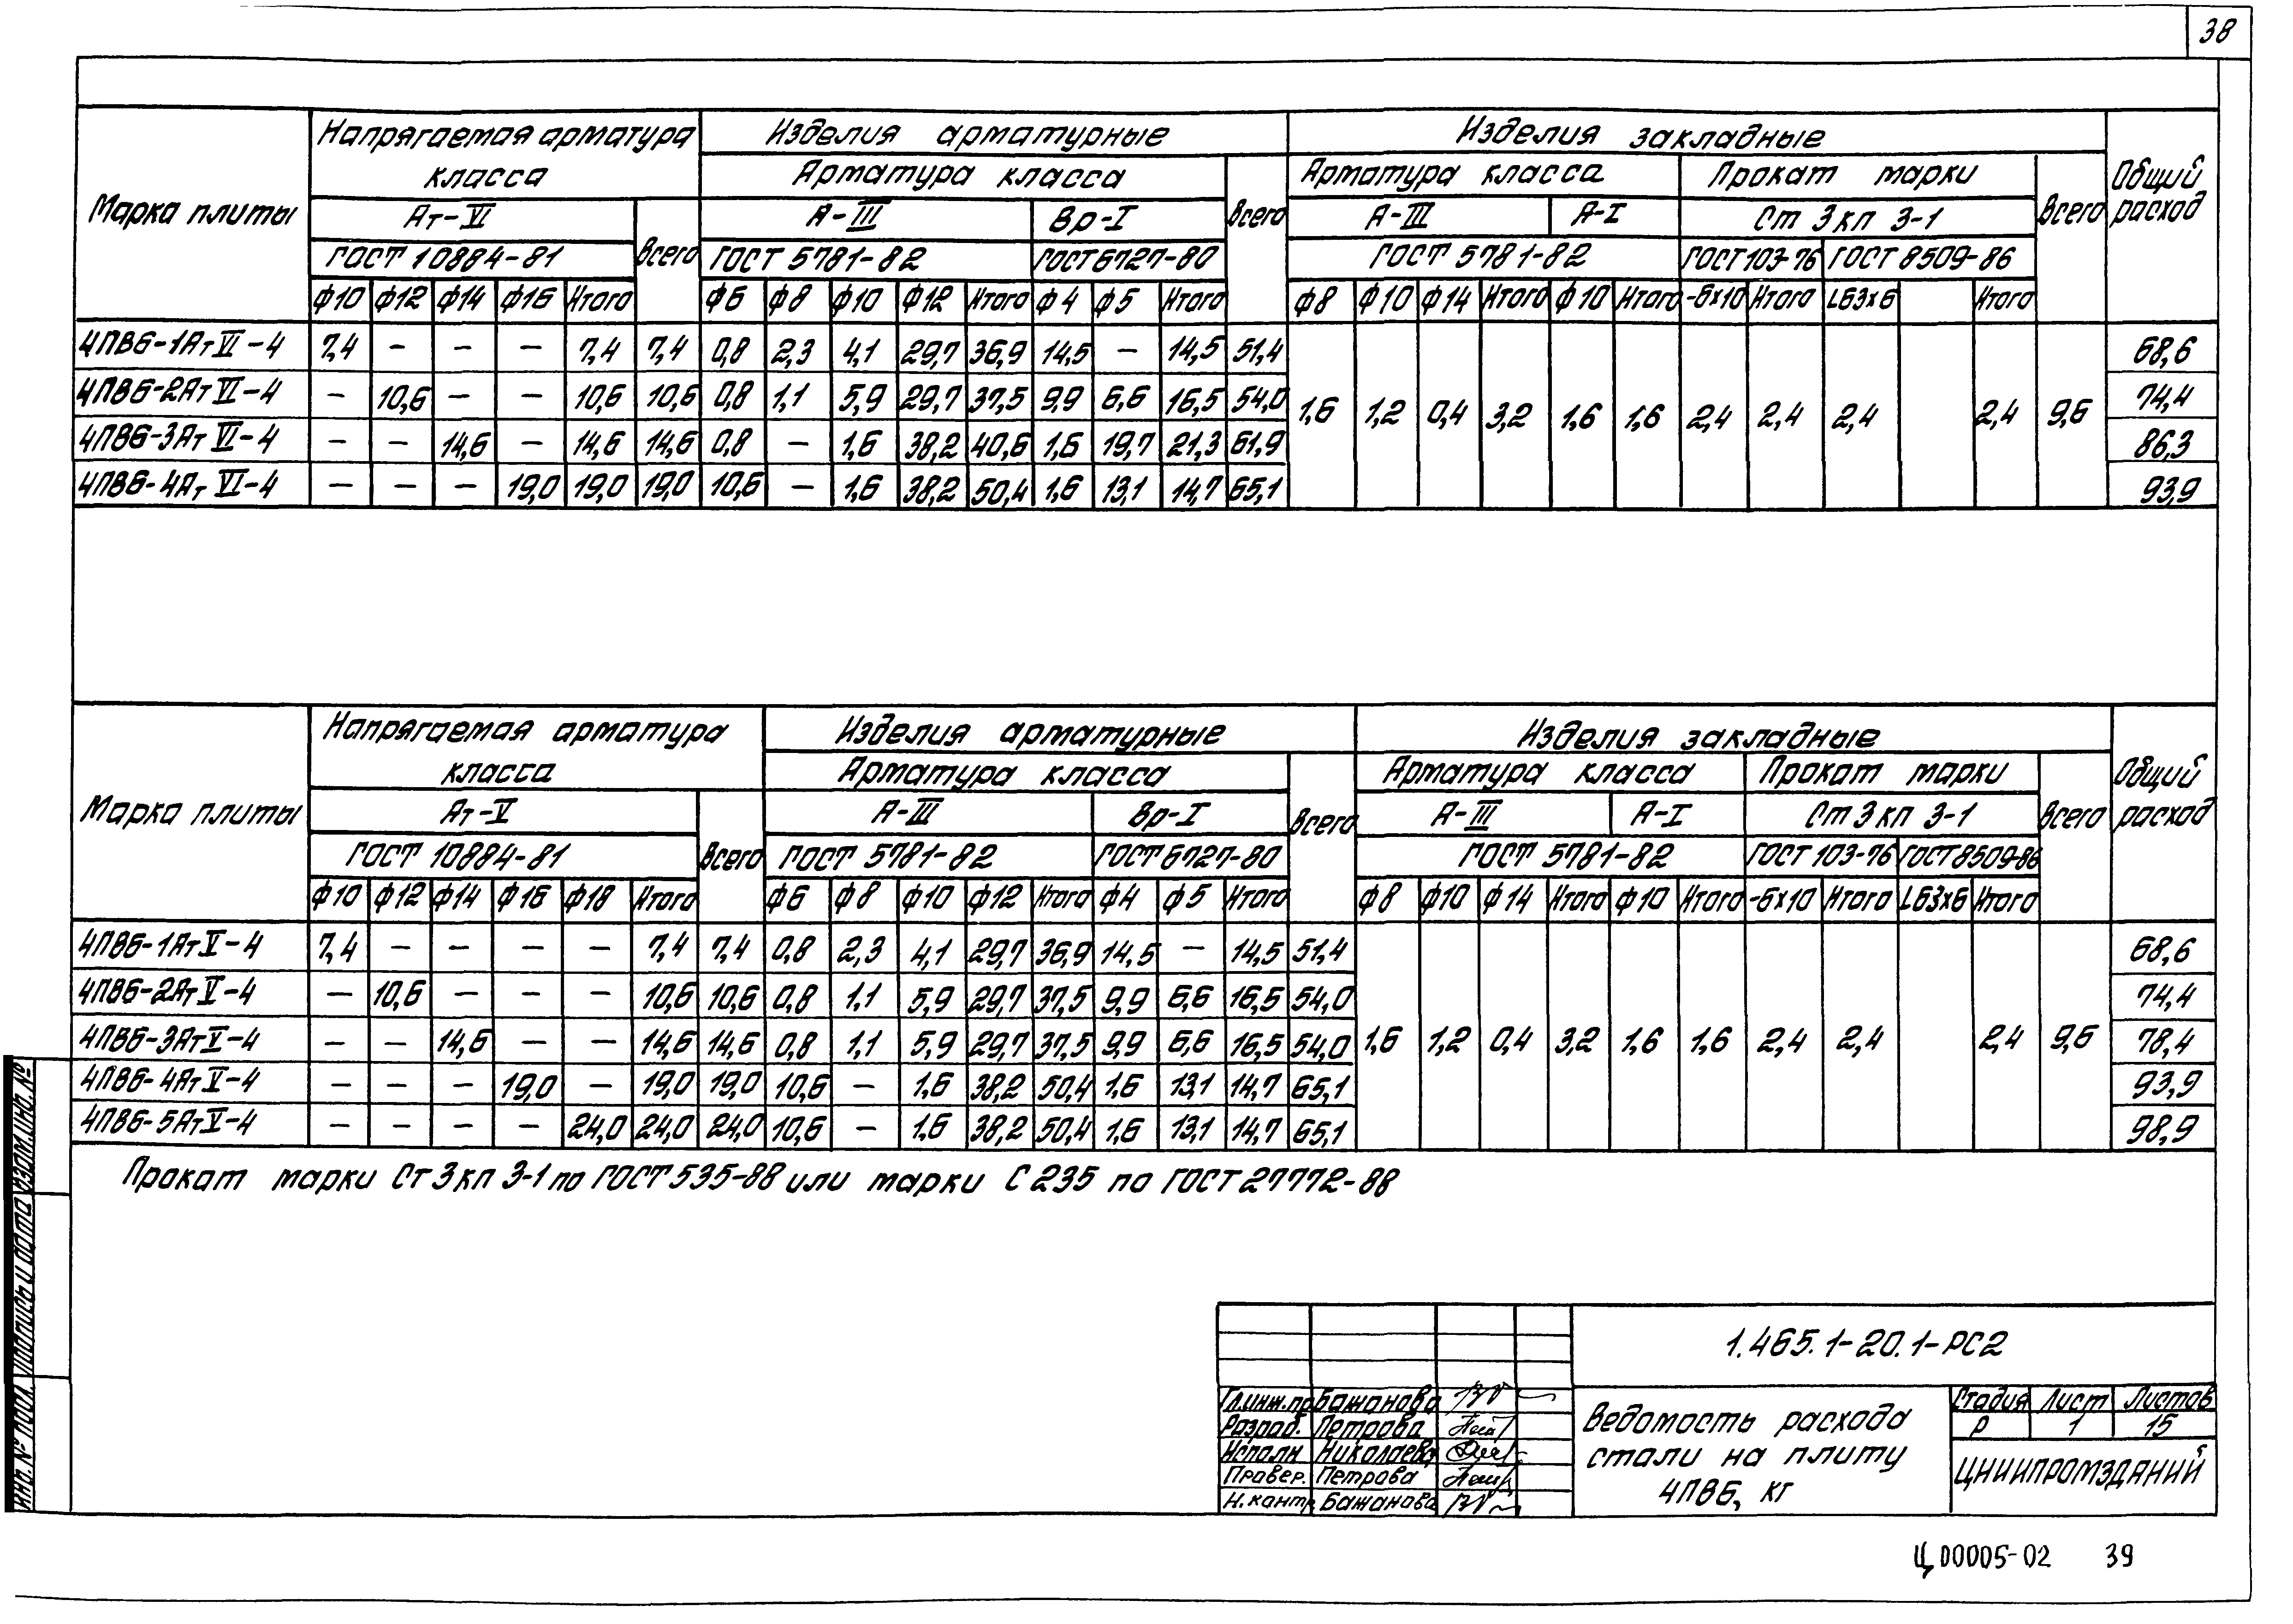 38
Марка плиты | Напрягаемая арматура класса | Изделия арматурные | Изделия закладные | Общий расход
Арматура класса | Всего | Арматура класса | Прокат марки | Всего
Ат-VI | Всего | А-III | Вр-I | А-III | А-I | Ст 3кп 3-1
ГОСТ 10884-81 | ГОСТ 5781-82 | ГОСТ 6727-80 | ГОСТ 5781-82 | ГОСТ 103-76 | ГОСТ 8509-86
Ф10 | Ф12 | Ф14 | Ф16 | Итого | Ф6 | Ф8 | Ф10 | Ф12 | Итого | Ф4 | Ф5 | Итого | Ф8 | Ф10 | Ф14 | Итого | Ф10 | Итого | -6х10 | Итого | L63х6 | Итого
4ПВ6-1АтVI-4 | 7,4 | — | — | — | 7,4 | 7,4 | 0,8 | 2,3 | 4,1 | 29,7 | 36,9 | 14,5 | — | 14,5 | 51,4 | 68,6
4ПВ6-2АтVI-4 | — | 10,6 | — | — | 10,6 | 10,6 | 0,8 | 1,1 | 5,9 | 29,7 | 37,5 | 9,9 | 6,6 | 16,5 | 54,0 | 74,4
1,6 | 1,2 | 0,4 | 3,2 | 1,6 | 1,6 | 2,4 | 2,4 | 2,4 | 2,4 | 9,6
4ПВ6-3АтVI-4 | — | — | 14,6 | — | 14,6 | 14,6 | 0,8 | — | 1,6 | 38,2 | 40,6 | 1,6 | 19,7 | 21,3 | 61,9 | 86,3
4ПВ6-4АтVI-4 | — | — | — | 19,0 | 19,0 | 19,0 | 10,6 | — | 1,6 | 38,2 | 50,4 | 1,6 | 13,1 | 14,7 | 65,1 | 93,9
Марка плиты | Напрягаемая арматура класса | Изделия арматурные | Изделия закладные | Общий расход
Арматура класса | Всего | Арматура класса | Прокат марки | Всего
Ат-V | Всего | А-III | Вр-I | А-III | А-I | Ст 3кп 3-1
ГОСТ 10884-81 | ГОСТ 5781-82 | ГОСТ 6727-80 | ГОСТ 5781-82 | ГОСТ 103-76 | ГОСТ 8509-86
Ф10 | Ф12 | Ф14 | Ф16 | Ф18 | Итого | Ф6 | Ф8 | Ф10 | Ф12 | Итого | Ф4 | Ф5 | Итого | Ф8 | Ф10 | Ф14 | Итого | Ф10 | Итого | -6х10 | Итого | L63х6 | Итого
4ПВ6-1АтV-4 | 7,4 | — | — | — | — | 7,4 | 7,4 | 0,8 | 2,3 | 4,1 | 29,7 | 36,9 | 14,5 | — | 14,5 | 51,4 | 68,6
4ПВ6-2АтV-4 | — | 10,6 | — | — | — | 10,6 | 10,6 | 0,8 | 1,1 | 5,9 | 29,7 | 37,5 | 9,9 | 6,6 | 16,5 | 54,0 | 74,4
4ПВ6-3АтV-4 | — | — | 14,6 | — | — | 14,6 | 14,6 | 0,8 | 1,1 | 5,9 | 29,7 | 37,5 | 9,9 | 6,6 | 16,5 | 54,0 | 1,6 | 1,2 | 0,4 | 3,2 | 1,6 | 1,6 | 2,4 | 2,4 | 2,4 | 9,6 | 78,4
4ПВ6-4АтV-4 | — | — | — | 19,0 | — | 19,0 | 19,0 | 10,6 | — | 1,6 | 38,2 | 50,4 | 1,6 | 13,1 | 14,7 | 65,1 | 93,9
4ПВ6-5АтV-4 | — | — | — | — | 24,0 | 24,0 | 24,0 | 10,6 | — | 1,6 | 38,2 | 50,4 | 1,6 | 13,1 | 14,7 | 65,1 | 98,9
Прокат марки Ст 3кп 3-1 по ГОСТ 535-88 или марки С 235 по ГОСТ 27772-88
Инв. № подл. Подпись и дата Взам.инв.№
1.465.1-20.1-РС2
Гл.инж.пр Бажанова
Разраб. Петрова
Исполн Николаева
Провер. Петрова
Н.контр Бажанова
Ведомость расхода
стали на плиту
4ПВ6, кг
Стадия Лист Листов
Р 1 15
ЦНИИПРОМЗДАНИЙ
Ц00005-02 39